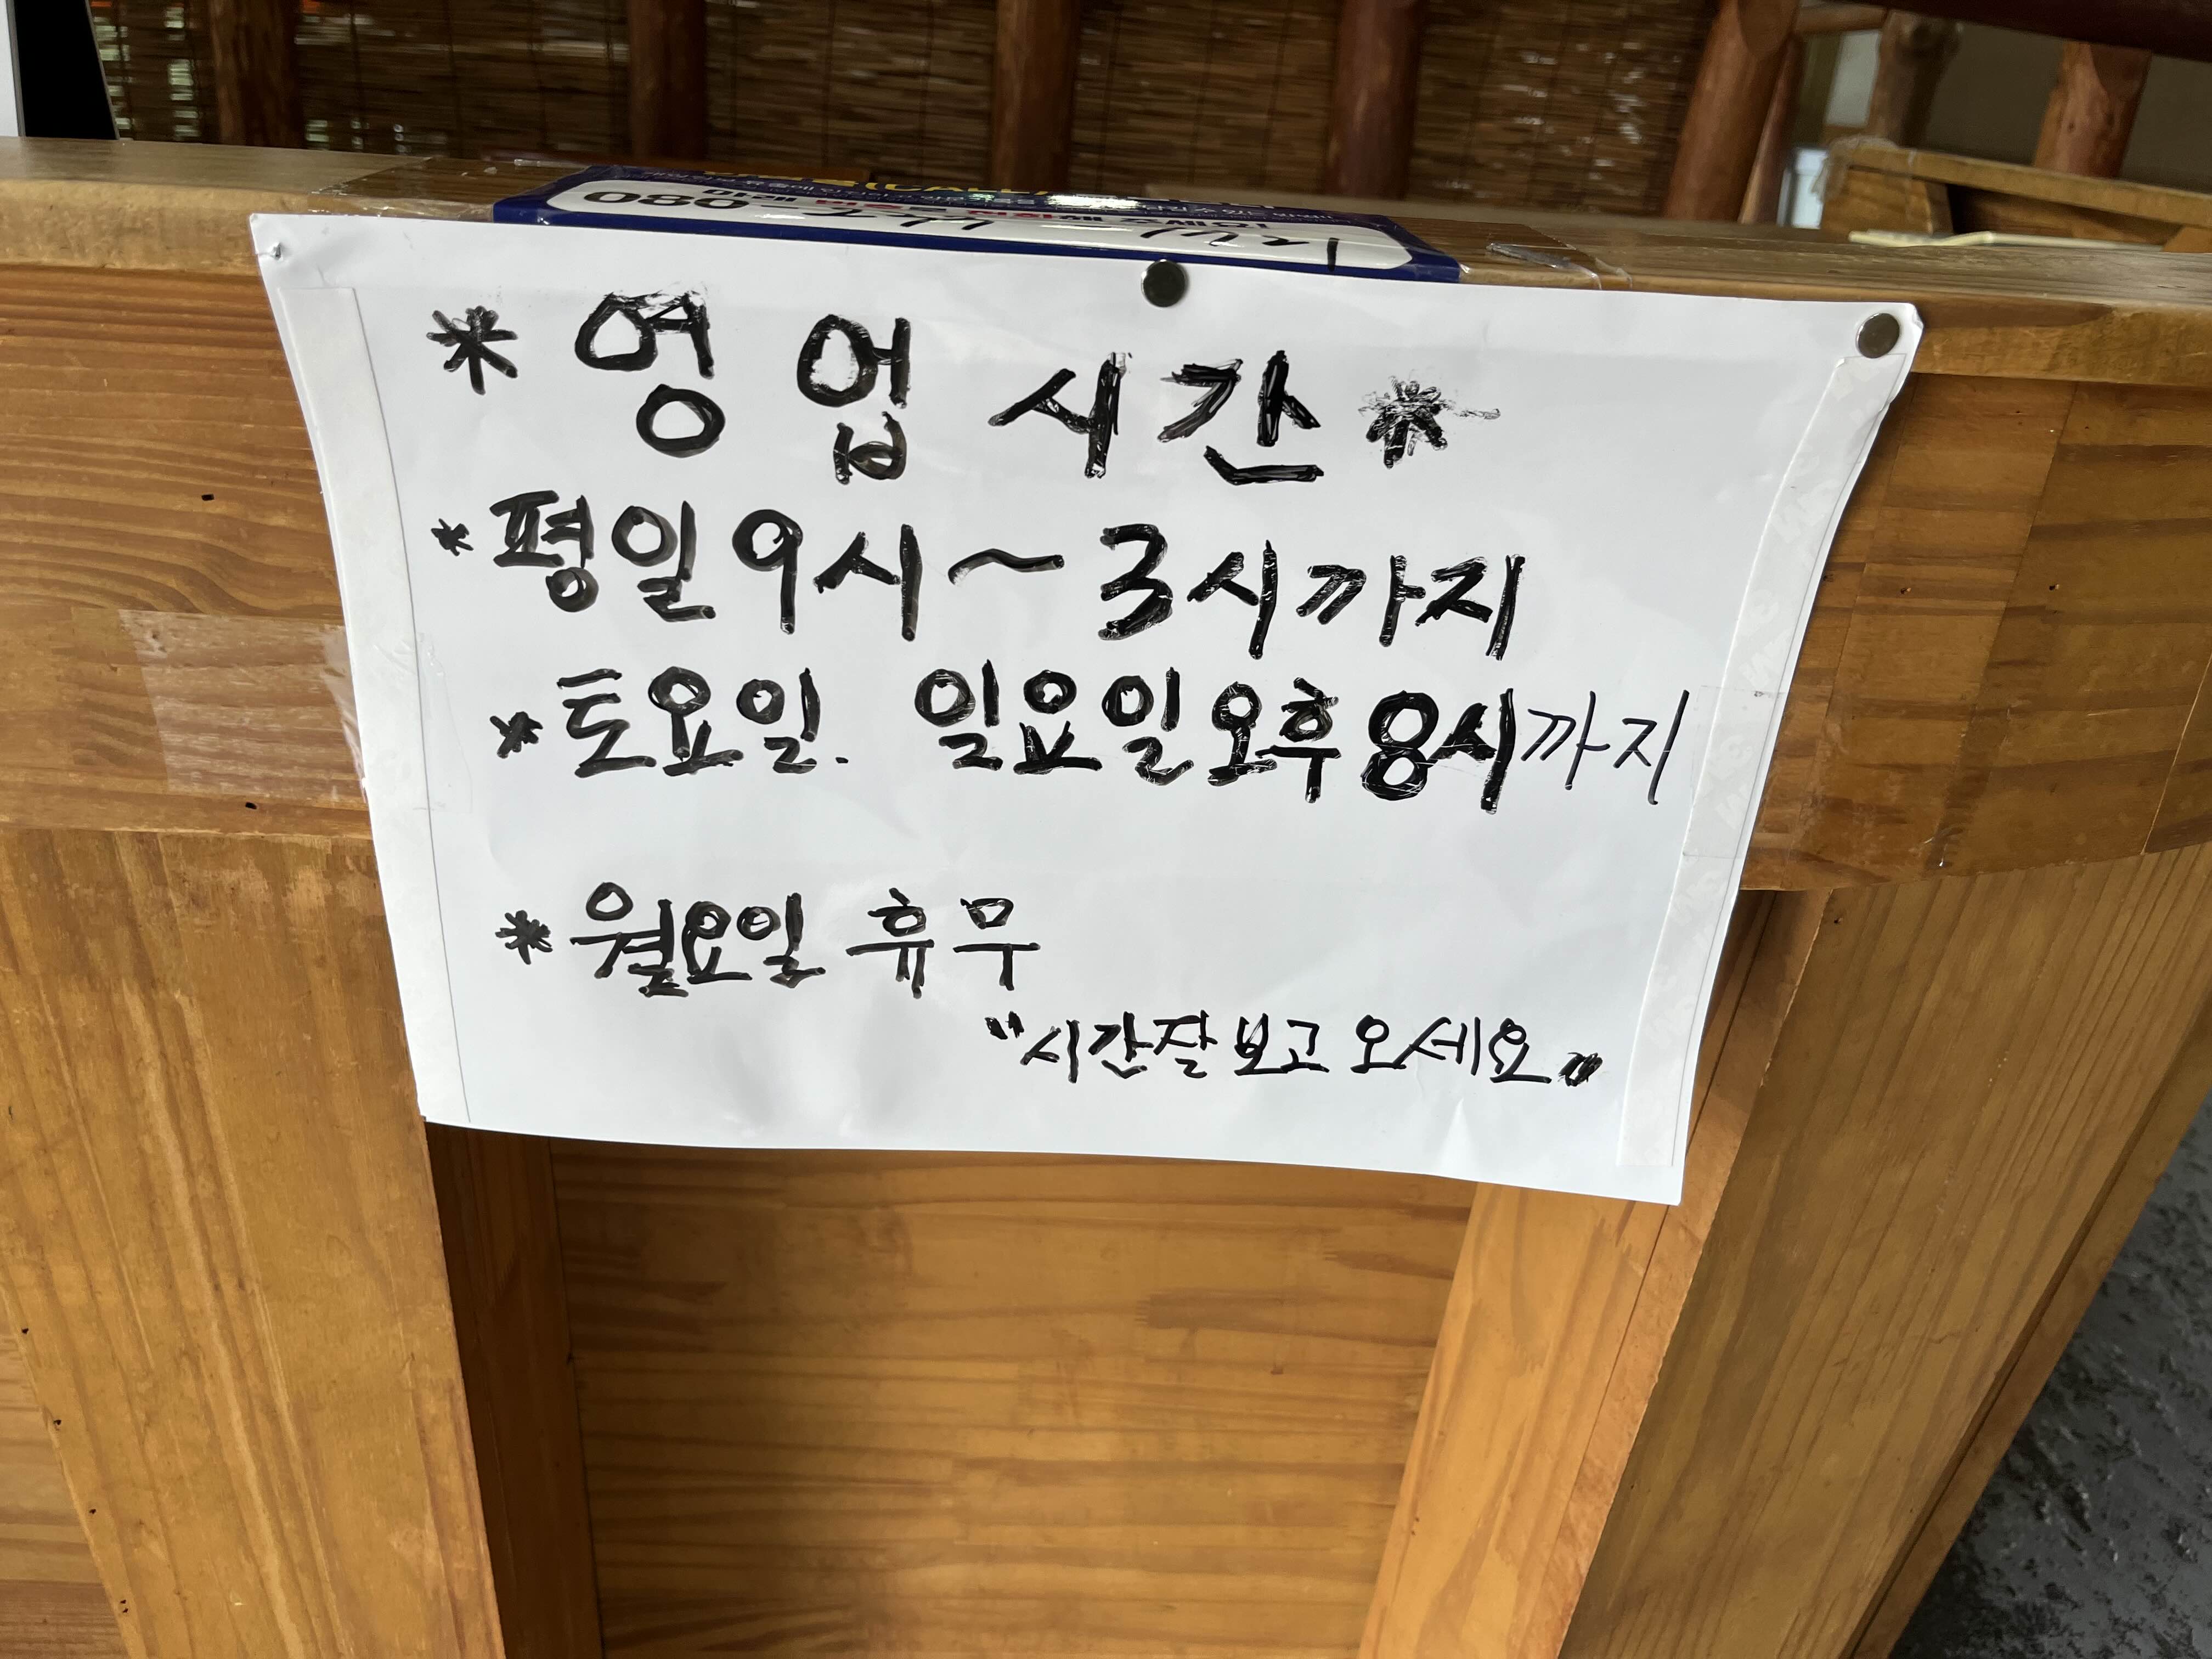 080
* 영업시간 *
* 평일 9시 ~ 3시까지
* 토요일. 일요일 오후 8시까지
* 월요일 휴무
"시간 잘 보고 오세요"